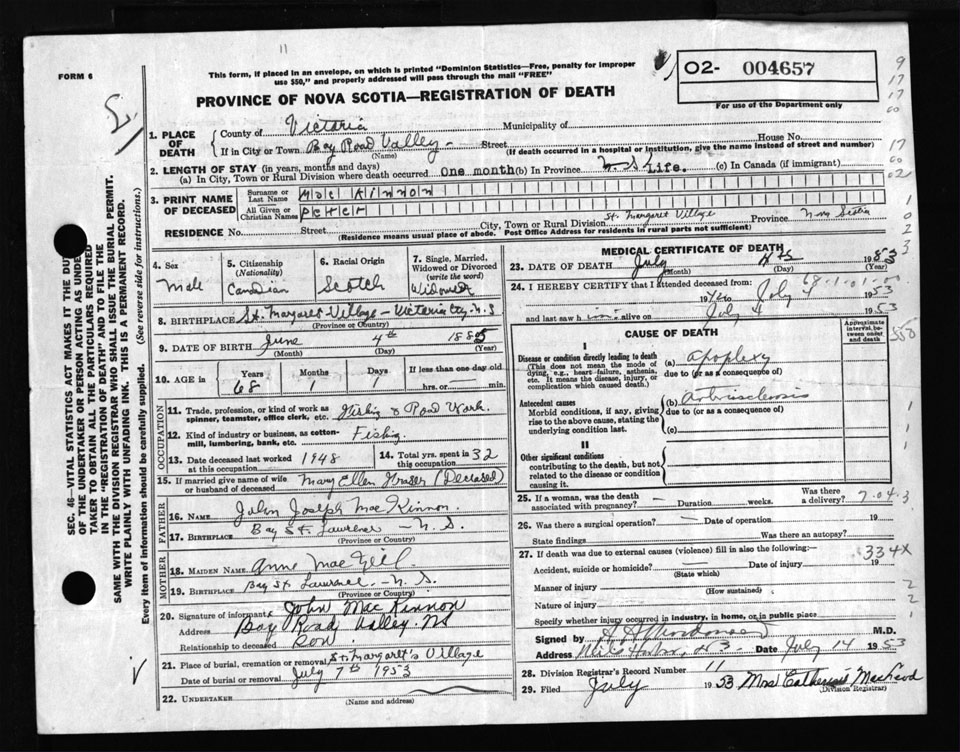 11
FORM 6
This form, if placed in an envelope, on which is printed "Dominion Statistics—Free, penalty for improper
use $50," and properly addressed will pass through the mail "FREE"
02- 004657
For use of the Department only
PROVINCE OF NOVA SCOTIA—REGISTRATION OF DEATH
1. PLACE OF DEATH
County of Victoria Municipality of
If in City or Town Bay Road Valley - Street House No.
(Name) (If death occurred in a hospital or institution, give the name instead of street and number)
2. LENGTH OF STAY (in years, months and days)
(a) In City, Town or Rural Division where death occurred One month (b) In Province N.S. Life. (c) In Canada (if immigrant)
3. PRINT NAME OF DECEASED
Surname or Last Name Mac Kinnon
All Given or Christian Names Peter
RESIDENCE No. Street City, Town or Rural Division St. Margaret Village Province Nova Scotia
(Residence means usual place of abode. Post Office Address for residents in rural parts not sufficient)
4. Sex
Male
5. Citizenship (Nationality)
Canadian
6. Racial Origin
Scotch
7. Single, Married, Widowed or Divorced (write the word)
Widower
8. BIRTHPLACE St. Margaret Village - Victoria Cty. N.S
(Province or Country)
9. DATE OF BIRTH June 4th 1885
(Month) (Day) (Year)
10. AGE in Years 68 Months 1 Days 1 If less than one day old hrs. or min.
OCCUPATION
11. Trade, profession, or kind of work as spinner, teamster, office clerk, etc. Fishing & Road Work.
12. Kind of industry or business, as cotton-mill, lumbering, bank, etc. Fishing
13. Date deceased last worked at this occupation 1948
14. Total yrs. spent in this occupation 32
15. If married give name of wife or husband of deceased Mary Ellen Fraser (Deceased)
FATHER
16. NAME John Joseph Mac Kinnon
17. BIRTHPLACE Bay St. Lawrence - N.S.
(Province or Country)
MOTHER
18. MAIDEN NAME Anne Mac Neil
19. BIRTHPLACE Bay St. Lawrence - N.S.
(Province or Country)
20. Signature of informant John Mac Kinnon
Address Bay Road Valley. NS
Relationship to deceased Son
21. Place of burial, cremation or removal St. Margaret's Village
Date of burial or removal July 7th 1953
22. UNDERTAKER
(Name and Address)
MEDICAL CERTIFICATE OF DEATH
23. DATE OF DEATH July 1953
(Month) (Day) (Year)
24. I HEREBY CERTIFY that I attended deceased from:
to July 4 1953
and last saw him alive on July 4 1953
CAUSE OF DEATH
Approximate interval, between onset and death
I
Disease or condition directly leading to death
(This does not mean the mode of dying, e.g., heart failure, asthenia, etc. It means the disease, injury, or complication which caused death.)
(a) Apoplexy
due to (or as a consequence of)
Antecedent causes
Morbid conditions, if any, giving rise to the above cause, stating the underlying condition last.
(b) Arteriosclerosis
due to (or as a consequence of)
(c)
II
Other significant conditions
contributing to the death, but not related to the disease or condition causing it.
25. If a woman, was the death associated with pregnancy? - Duration weeks. Was there a delivery?
26. Was there a surgical operation? - Date of operation 19
State findings Was there an autopsy?
27. If death was due to external causes (violence) fill in also the following:
Accident, suicide or homicide? Date of injury 19
(State which)
Manner of injury
(How sustained)
Nature of injury
Specify whether injury occurred in industry, in home, or in public place
Signed by M.D.
Address Date July 14 1953
28. Division Registrar's Record Number 11
29. Filed July 1953 Mrs Catherine MacLeod
(Division Registrar)
7.04.3
334X
SEC. 46—VITAL STATISTICS ACT MAKES IT THE DUTY
OF THE UNDERTAKER OR PERSON ACTING AS UNDER-
TAKER TO OBTAIN ALL THE PARTICULARS REQUIRED
IN THE "REGISTRATION OF DEATH" AND TO FILE THE
SAME WITH THE DIVISION REGISTRAR WHO SHALL ISSUE THE BURIAL PERMIT.
WRITE PLAINLY WITH UNFADING INK. THIS IS A PERMANENT RECORD.
Every item of information should be carefully supplied. (See reverse side for instructions.)